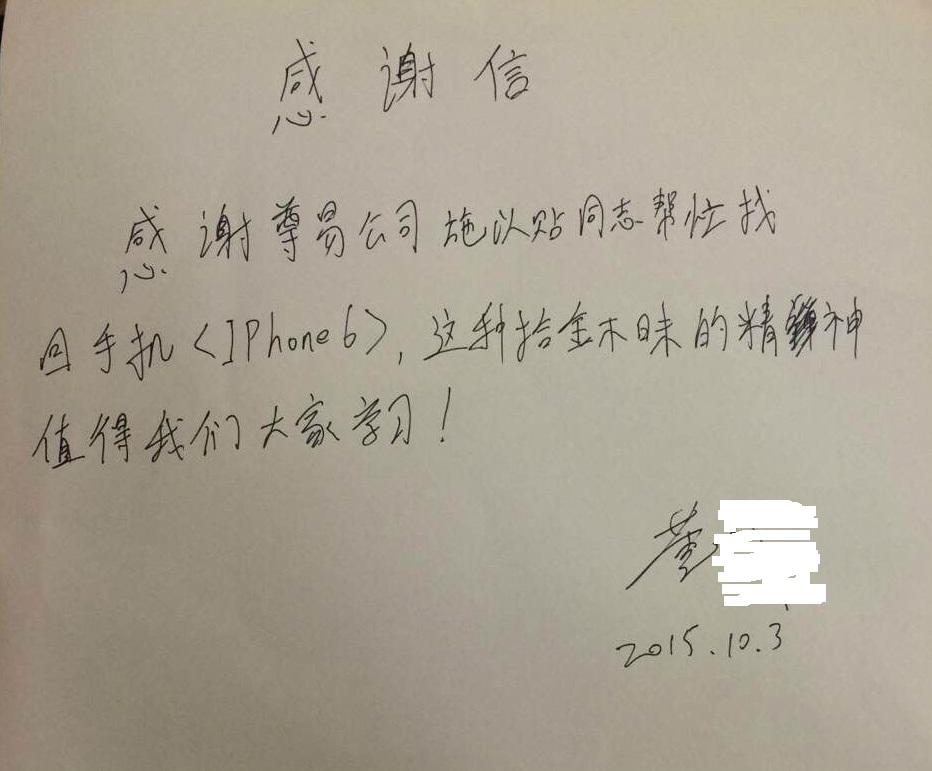 感谢信
感谢尊易公司施以贴同志帮忙找
回手机<IPhone6>,这种拾金不昧的精神
值得我们大家学习!
董
2015.10.3